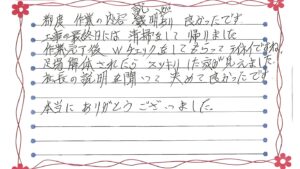 都度 作業の内容 説明あり 良かったです
工事の最終日には 清掃をして 帰りました
作業完了後 Wチェックをしてもらって
足場解体されたら スッキリした家が見えました
社長の説明を聞いて 決めて良かったです
本当に ありがとうございました。